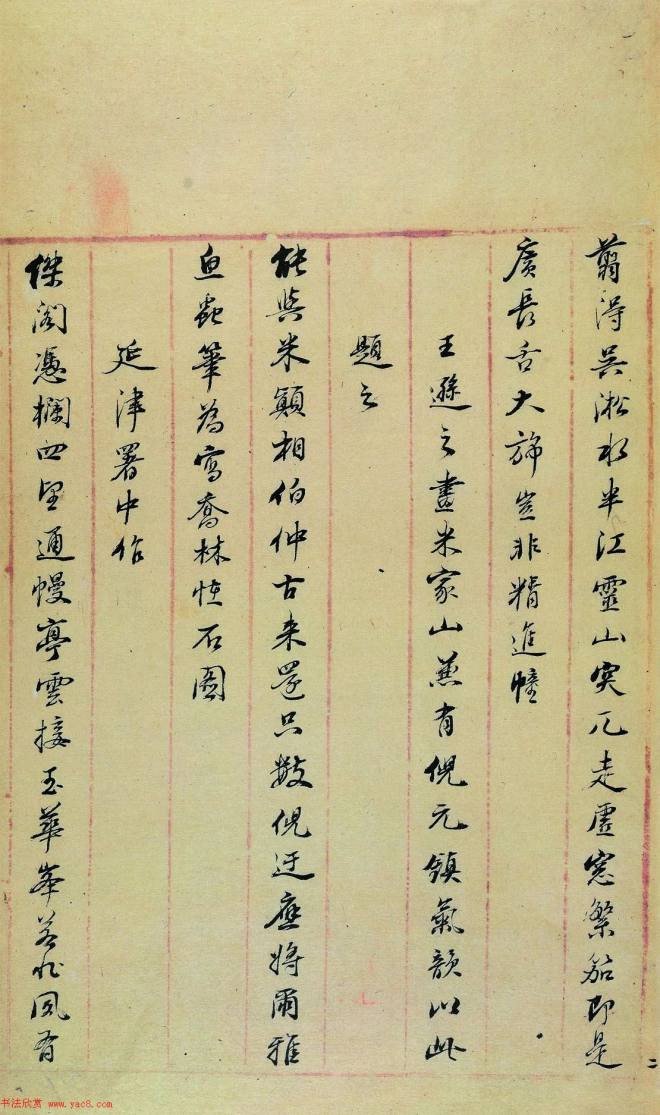 翦得吳淞水半江靈山突兀走虛窓繁笳即是
廣長舌大斾豈非精進幢
王遜之畫米家山兼有倪元鎮氣韻以此
題之
能與米顛相伯仲古來還只數倪迂應將爾雅
魚蟲筆為寫喬林怪石圖
延津署中作
傑閣憑欄四望通幔亭雲接玉華峯若非風有
二
书法欣赏 www.yac8.com